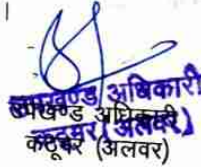 उपखण्ड अधिकारी
कठूमर (अलवर)
उपखण्ड अधिकारी
कठूमर (अलवर)